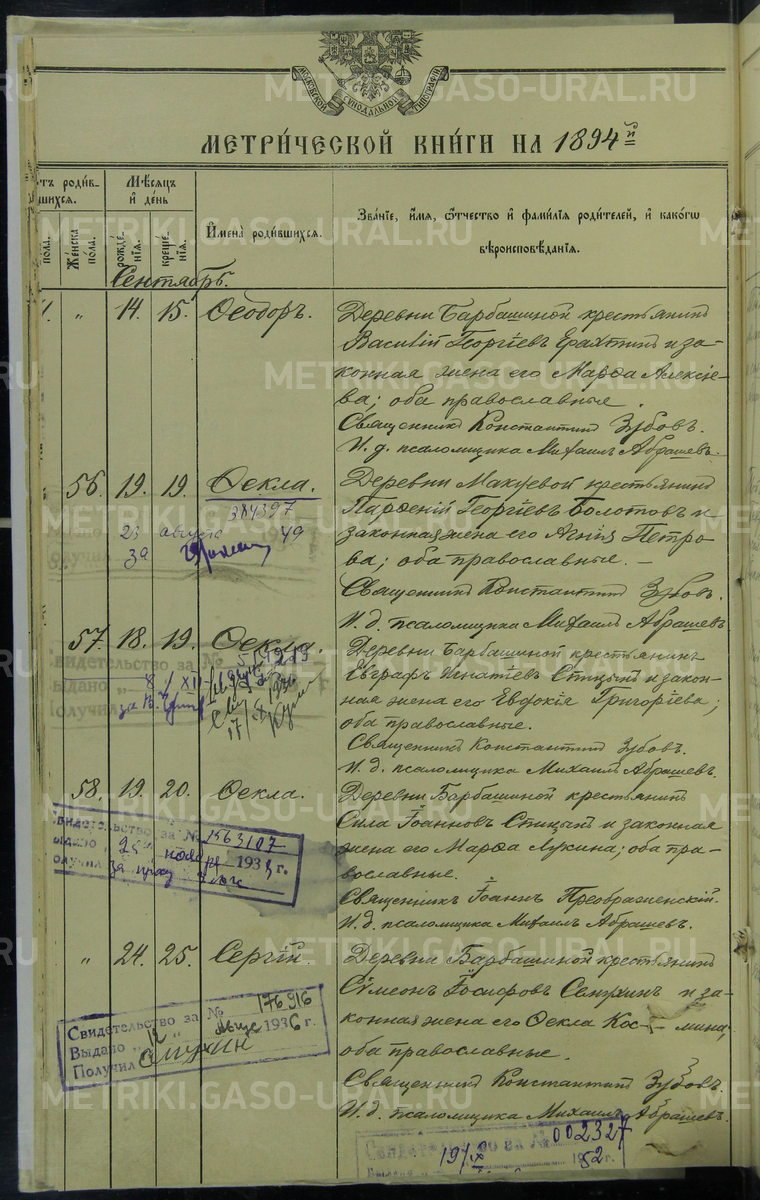 МОСКОВСКОЙ СѴНОДАЛЬНОЙ ТИПОГРАФІИ
МЕТРИ́ЧЕСКОЙ КНИ́ГИ НА 1894й
тъ роди́в-
шихся.
Мѣ́сяцъ
и҆ де́нь
пола.
Же́нска
по́ла.
рожде́-
нїя.
креще́-
нїя.
И҆мена̀ роди́вшихся.
Зва́нїе, и҆́мя, ѻ҆́тчество и҆ фами́лїя роди́телей, и҆ како́гѡ
вѣроисповѣ́данїя.
Сентябрь.
" 14. 15. Ѳеодоръ.
Деревни Барбашиной крестьянинъ
Василій Георгіевъ и за-
конная жена его Марѳа Алексіе-
ва; оба православные.
Священникъ Константинъ Зубовъ.
И. д. псаломщика Михаилъ Абрашевъ.
56. 19. 19. Ѳекла.
384397
23 августа 49
за
Деревни Макуевой крестьянинъ
Парѳеній Георгіевъ Болотовъ и
законная жена его Агнія Петро-
ва; оба православные. —
Священникъ Константинъ Зубовъ.
И. д. псаломщика Михаилъ Абрашевъ.
57. 18. 19. Ѳекла.
видетельство за №
ыдано „ 8 / XII
олучил
Деревни Барбашиной крестьянинъ
Евграфъ Игнатіевъ Спицынъ и закон-
ная жена его Евдокія Григоріева;
оба православные.
Священникъ Константинъ Зубовъ.
И. д. псаломщика Михаилъ Абрашевъ.
58. 19. 20. Ѳекла.
видетельство за № 1563107
ыдано „ 25 нояб 193 г.
олучил за
Деревни Барбашиной крестьянинъ
Сила Іоанновъ Спицынъ и законная
жена его Марѳа Лукина; оба пра-
вославные.
Священникъ Іоаннъ Преображенскій.
И. д. псаломщика Михаилъ Абрашевъ.
" 24. 25. Сергій.
Свидетельство за № 176916
Выдано „ 12 „ авгус 1936 г.
Получил
Деревни Барбашиной крестьянинъ
Сѵмеонъ Іосифовъ и за-
конная жена его Ѳекла Кос- мина;
оба православные.
Священникъ Константинъ Зубовъ.
И. д. псаломщика Михаилъ Абрашевъ.
Свидетельство за № 002327
19/X 1952 г.
METRIKI.GASO-URAL.RU